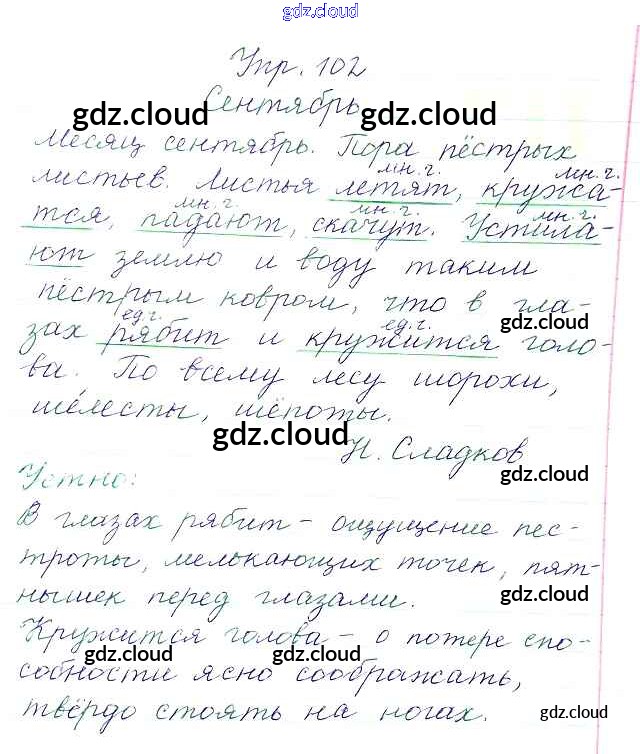 gdz.cloud
Упр. 102
Сентябрь
gdz.cloud gdz.cloud
Месяц сентябрь. Пора пёстрых
мн.ч. мн.ч.
листьев. Листья летят, кружа-
мн.ч. мн.ч. мн.ч.
тся, падают, скачут. Устила-
ют землю и воду таким
пёстрым ковром, что в гла-
ед.ч. ед.ч. gdz.cloud
зах рябит и кружится голо-
ва. По всему лесу шорохи,
шелесты, шёпоты.
gdz.cloud
Н. Сладков
gdz.cloud
Устно:
В глазах рябит - ощущение пес-
троты, мелькающих точек, пят-
нышек перед глазами.
gdz.cloud
Кружится голова - о потере спо-
gdz.cloud gdz.cloud gdz.cloud
собности ясно соображать,
твёрдо стоять на ногах.
gdz.cloud